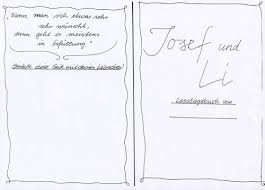 "Wenn man sich etwas sehr
sehr wünscht,
dann geht es meistens
in Erfüllung."
Gestalte diese Seite mit deinen Wünschen!
Josef und
Li
Lesetagebuch von